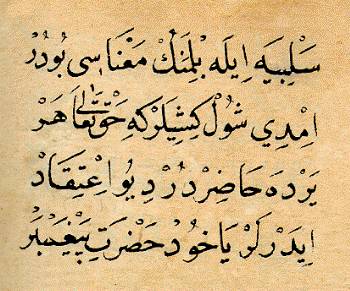 سَلْبِيَه اِيلَه بِلْمَنِكْ مَعْنَاسِى بُودُرْ
اِمْدِي شُولْ كِشِيلَرْ كِه حَقْ تَعَالَى هَرْ
يَرْدَه حَاضِرْ دُرْ دِيُو اِعْتِقَادْ
اِيدَرْلَرْ يَا خُودْ حَضْرَتِ پَيْغَمْبَرْ